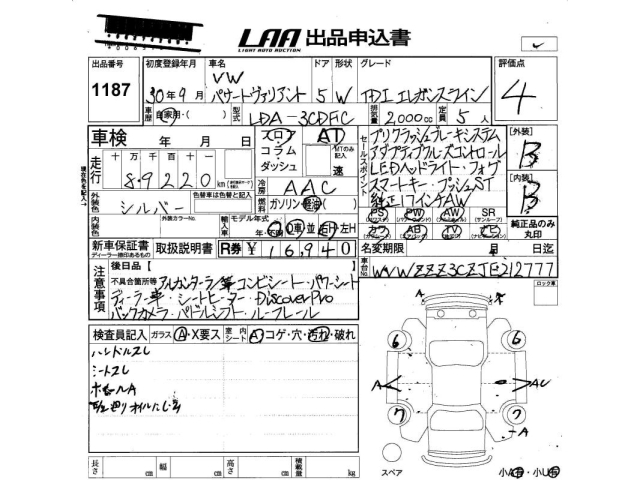 LAA 出品申込書
LIGHT AUTO AUCTION
出品番号 初度登録年月 車名 ドア 形状 グレード 評価点
1187 30年9月 VW パサートヴァリアント 5 W TDI エレガンスライン 4
車歴 自家用 型式 LDA-3CDFC 排気量 2,000cc 定員 5人
車検 年 月 日 フロア コラム ダッシュ AT MTのみ記入 速
走行 十万 万 千 百 十 km
89220
冷房 AAC
外装色 シルバー 色替車は色替と記入 燃料 ガソリン・軽油
内装色 外装カラーNo. 輸入車 モデル年式 年・不明 D車・並 右H・左H
新車保証書 取扱説明書 R券 ¥16,940
ディーラー捺印のあるもの
セールスポイント
プリクラッシュブレーキシステム
アダプティブクルーズコントロール
LEDヘッドライト・フォグ
スマートキー・プッシュST
純正17インチAW
PS PW AW SR
カワ AB TV ナビ
【外装】 B
【内装】 B
純正品のみ丸印
名変期限 月 日迄
車台No. WVWZZZ3CZJE212777
注意事項 後日品【 】
不具合箇所等 アルカンターラ/革コンビシート・パワーシート
ディーラー車・シートヒーター・DiscoverPro
バックカメラ・パドルシフト・ルーフレール
ロック車
検査員記入 ガラス A・X要ス 室内シート A コゲ・穴・汚れ・破れ
ハンドルスレ
シートスレ
ホイールA
長さ cm 幅 cm 高さ cm 積載量 kg
A
6 6
A AU
7 7
A
スペア
小A・小U